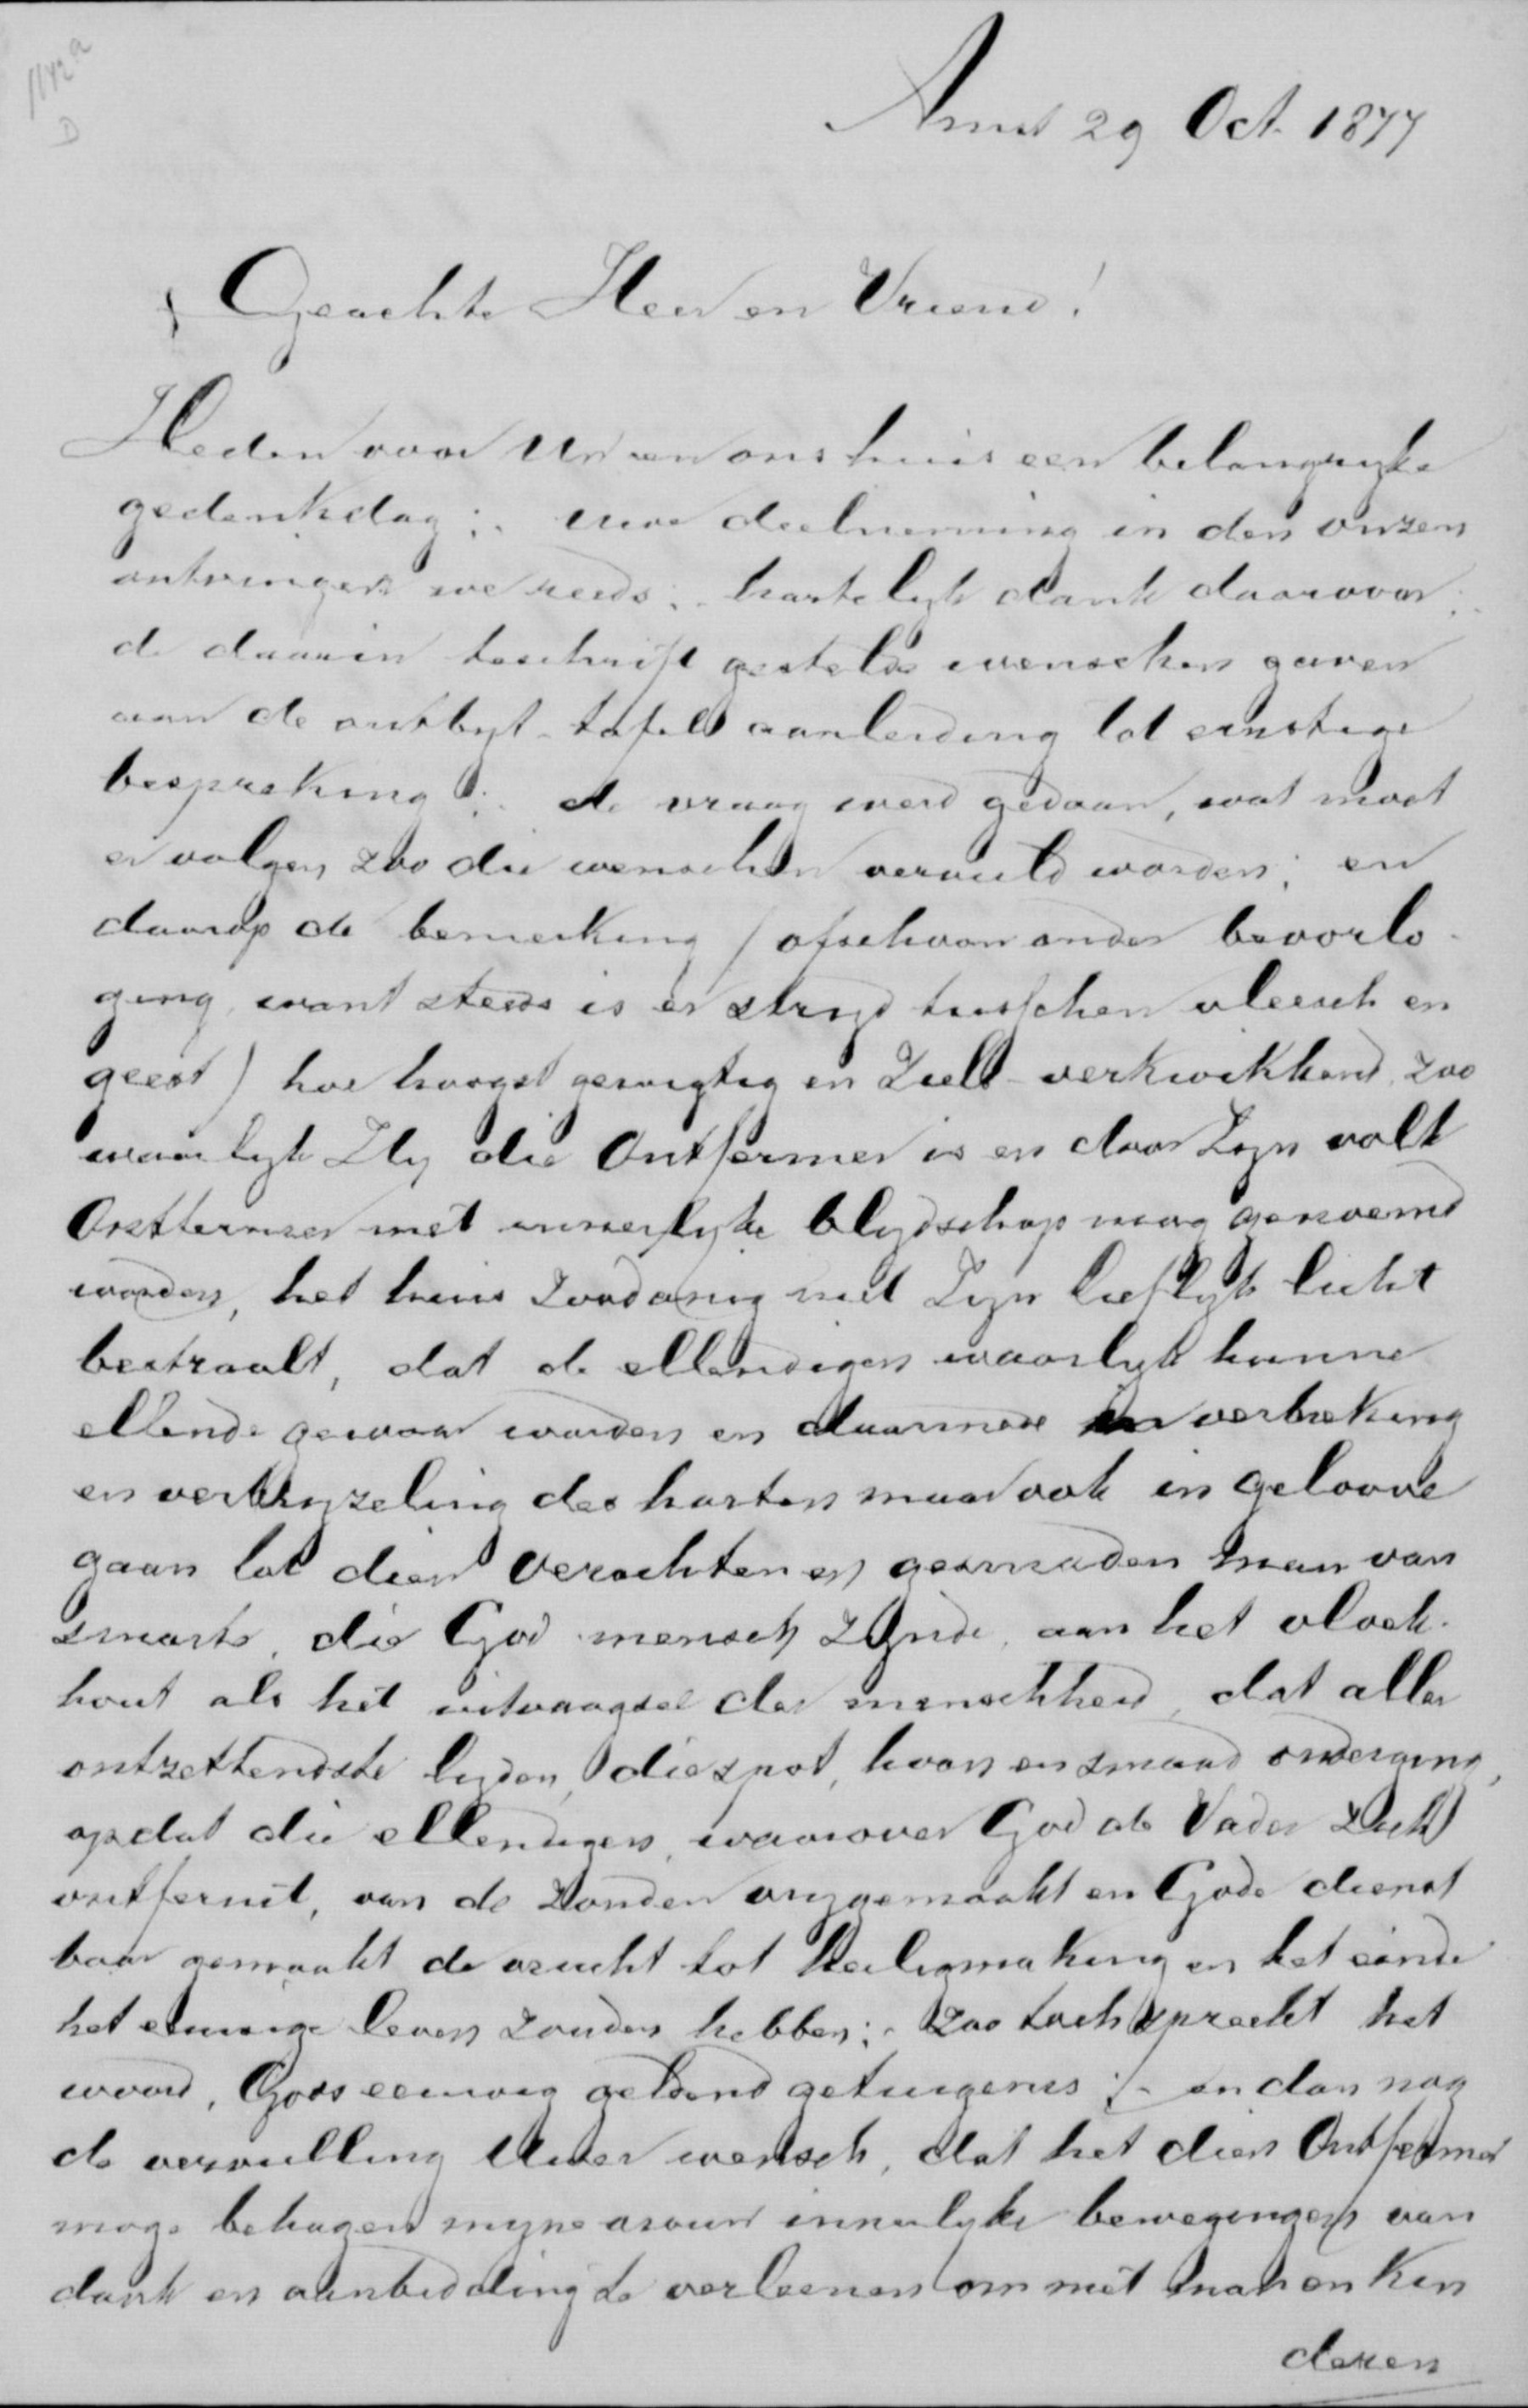 1142a
D
Amst 29 Oct. 1877
Geachte Heer en Vriend!
Heden voor Uw en ons huis een belangryke
gedenkdag;. Uwe deelneming in den onzen
ontvingen we reeds;. hartelyk dank daarvoor;.
de daarin teschrift gestelde wenschen gaven
aan de ontbyt-tafel aanleiding tot ernstige
bespreking;. de vraag werd gedaan, wat moet
er volgen zoo die wenschen vervuld worden; en
daarop de bemerking (ofschoon onder bevoorlo-
ging, want steeds is er stryd tusschen vleesch en
geest) hoe hoogst gewigtig en Ziels-verkwikkend, zoo
waarlyk Hy die Ontfermer is en door Zyn volk
Ontfermer met innerlyke blydschap mag genoemd
worden, het huis zoodanig met Zyn lieflyk licht
bestraalt, dat de ellendigen waarlyk hunne
ellende gewaar worden en daarmede in verbreking
en verbryzeling des harten maar ook in geloove
gaan tot dien Verachten en gesmaden man van
smarte, die God mensch zynde, aan het vloek-
hout als het uitvaagsel der menschheid, dat aller
ontzettendste lyden, die spot, hoon en smaad onderging,
opdat die ellendigen, waarover God de Vader Zich
ontfermt, van de zonden vrygemaakt en Gode dienst
baar gemaakt de vrucht tot heiligmaking en het einde
het eeuwige leven zouden hebben;. zoo toch spreekt het
woord, Gods eeuwig geldend getuigenis;. en dan nog
de vervulling Uwer wensch, dat het dien Ontfermer
moge behagen myne vrouw innerlyke bewegingen van
dank en aanbidding te verleenen om met man en kin
deren